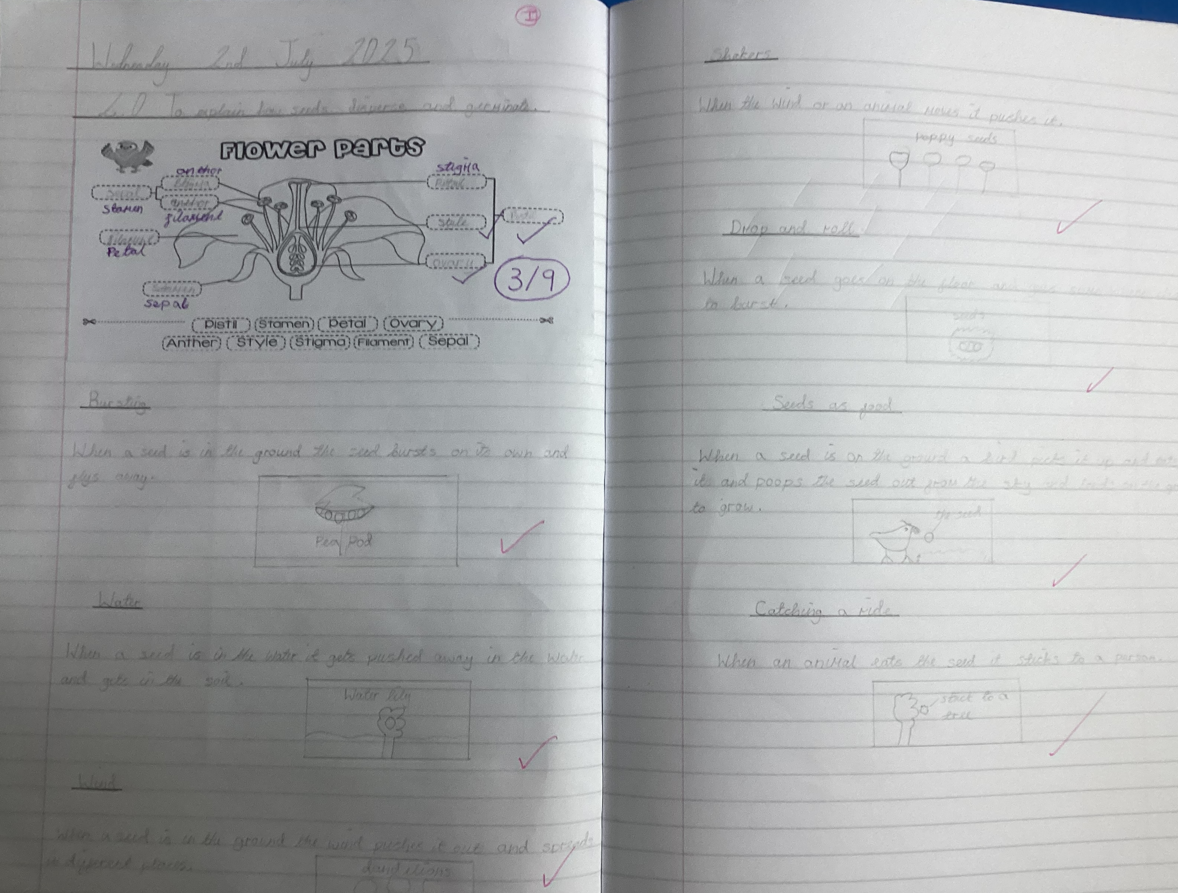 I
Wednesday 2nd July 2025
L.O To explain how seeds disperse and germinate.
Flower Parts
anther
stamen
filament
Petal
sepal
stigma
Petal
Style
Ovary
3/9
Pistil Stamen Petal Ovary
Anther Style Stigma Filament Sepal
Bursting
When a seed is in the ground the seed bursts on its own and
flys away.
Pea Pod
Water
When a seed is in the water it gets pushed away in the water
and gets in the soil.
Water lily
Wind
When a seed is in the ground the wind pushes it out and spreads
in different places.
dandelions
Shakers
When the wind or an animal moves it pushes it.
poppy seeds
Drop and roll
When a seed goes on the floor and
to burst.
seeds
Seeds as food
When a seed is on the ground a bird picks it up and eats
it and poops the seed out from the sky and lands on the
to grow.
the seed
Catching a ride
When an animal eats the seed it sticks to a person.
stick to a
tree